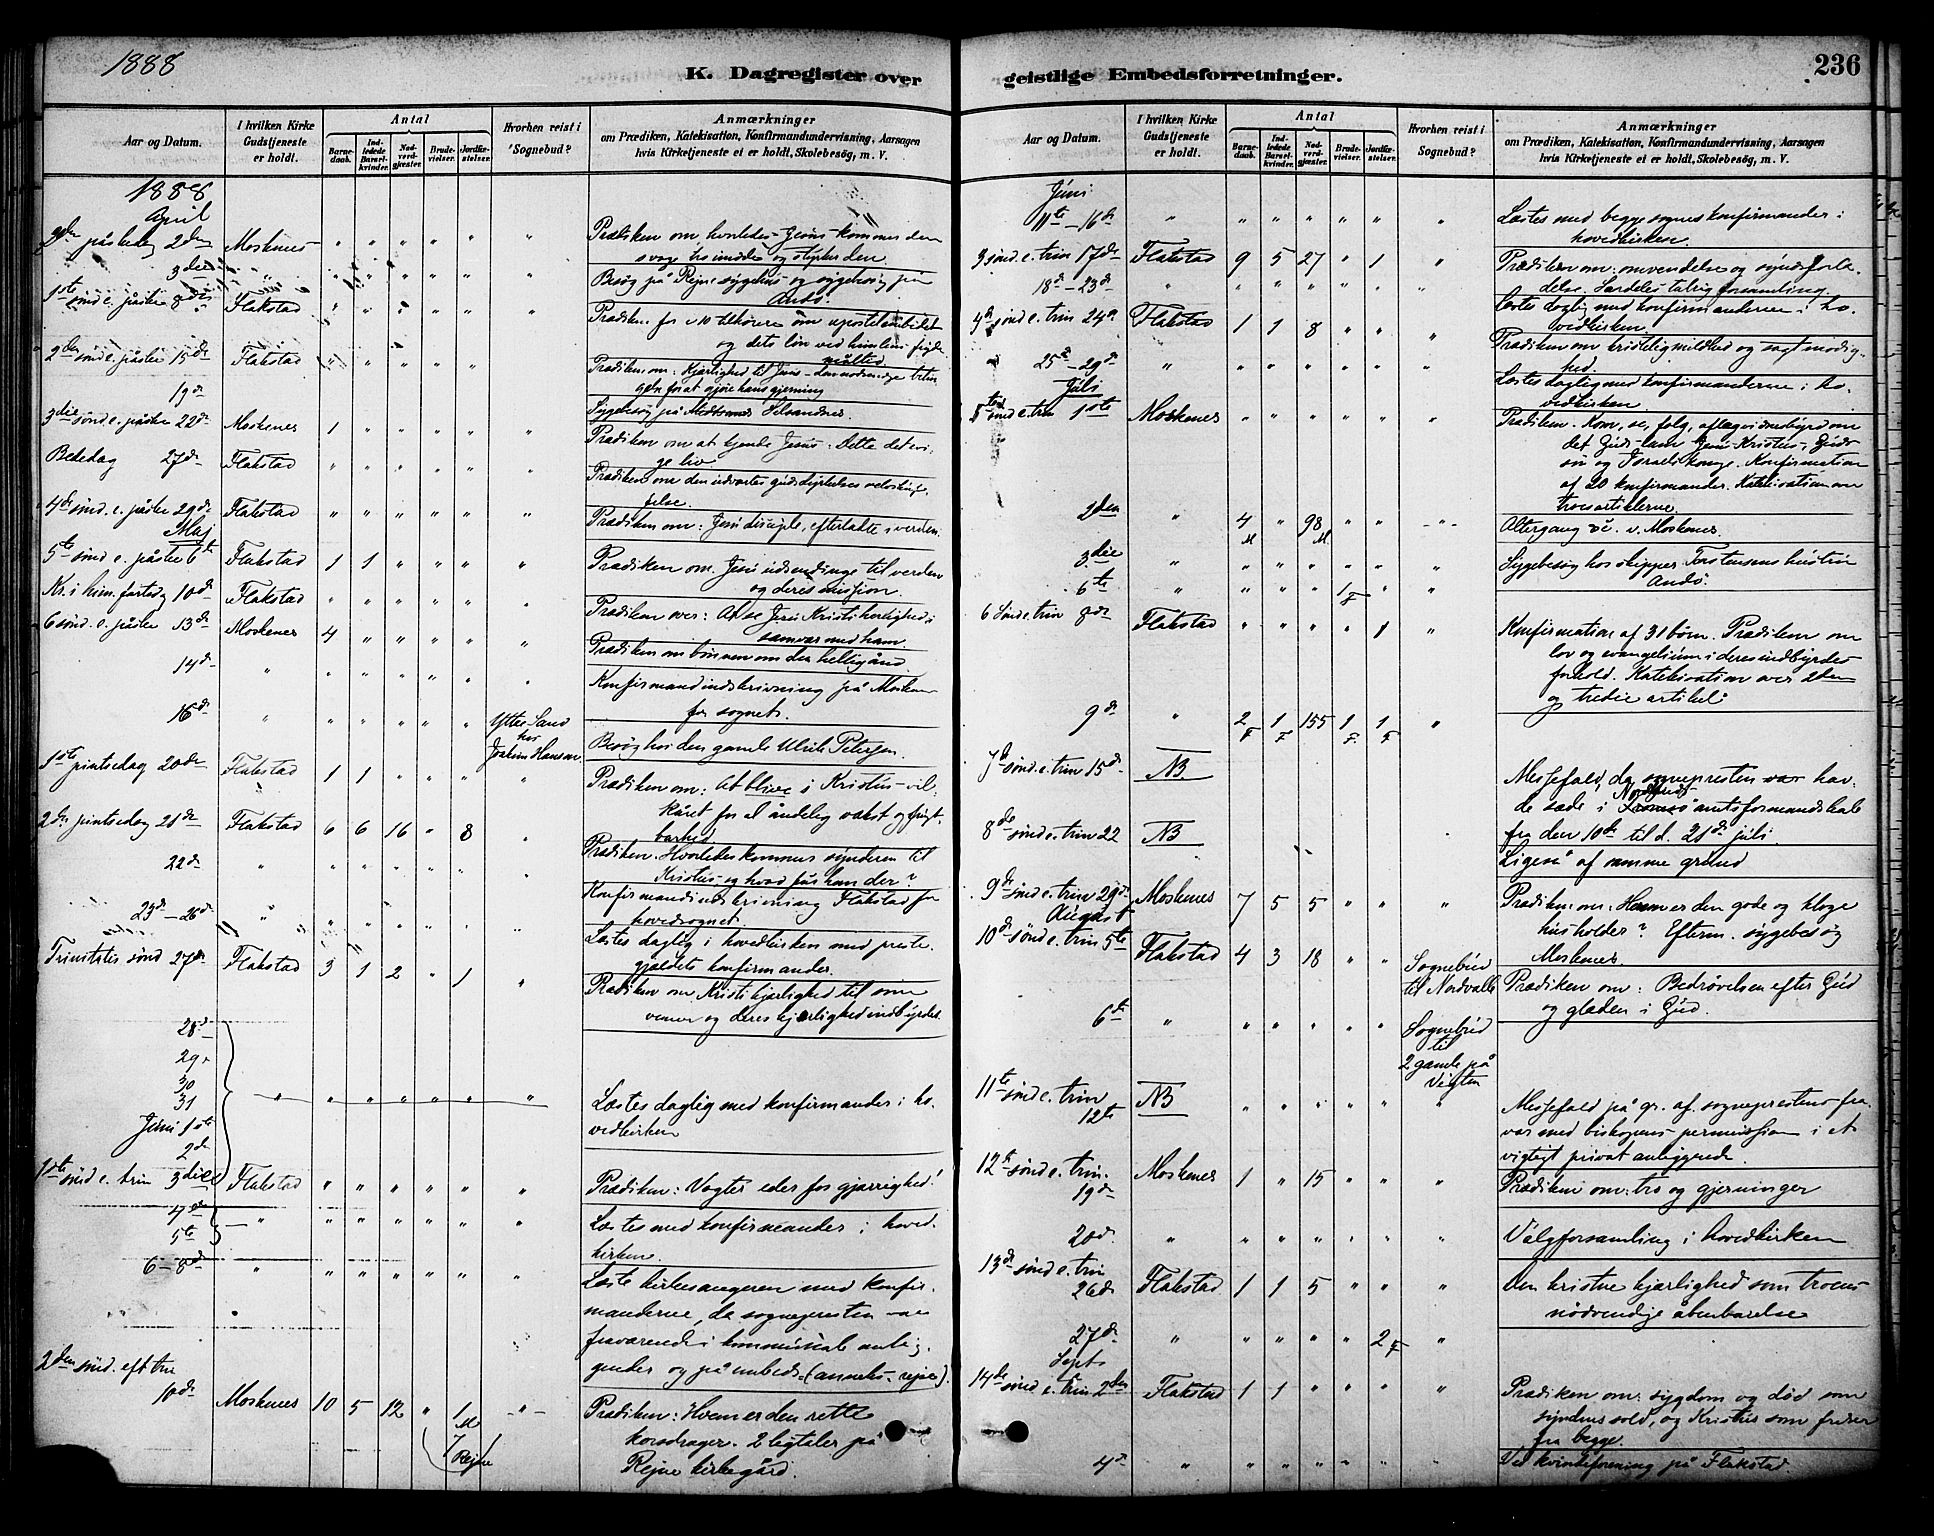 1888
K. Dagregister over
Aar og Datum.
I hvilken Kirke Gudstjeneste er holdt.
Antal
Barnedaab.
Indledede Barselkvinder.
Nadverdgjæster.
Brudevielser.
Jordfæstelser.
Hvorhen reist i Sognebud?
Anmærkninger
om Prædiken, Katekisation, Konfirmandundervisning, Aarsagen
hvis Kirketjeneste ei er holdt, Skolebesøg, m. V.
1888
April
2den påskedag 2den Moskenes " " " " " " Prædiken om, hvorledes Jesus kommer den
svage tro imøde og styrker den
3die " " " " " " " Besøg på Rejne sygehus og sygebesøg på
Andø
1ste sønd e. påske 8de Flakstad " " " " " " Prædiken for 10 tilhørere om apostelembedet
og dets løn ved himlens
2den sønd e. påske 15de Flakstad " " " " " Prædiken om: Kjærlighed til Jesus den nødvendige betin
gelse for at gjøre hans gjerning
19de Sygebesøg på
3die sønd e. påske 22de Moskenes 1 " " " " " Prædiken om at kjende Jesus: Dette det evi-
ge liv
Bededag 27de Flakstad " " " " " " Prædiken om den udvortes gudsdyrkelses
4de sønd. e. påske 29de Flakstad " " " " " " Prædiken om: Jesu disciple, efterladte i verden.
Maj
5te sønd e. påske 6te Flakstad 1 1 " " " " Prædiken om. Jesu udsendinge til verden
og deres mission.
Kr. i him. fartsdag 10de Flakstad " " " " " " Prædiken over: At se Jesu Kristi herlighed i
samvær med ham
6 sønd. e. påske 13de Moskenes 4 " " " " " Prædiken om bønnen om den helligånd
14de " " " " " " " Konfirmandindskrivning på Moskenes
for sognet.
16de " " " " " " Ytter Sand hos Joakim Hansen Besøg hos den gamle Ulrik Petersen
1ste pintsedag 20de Flakstad 1 1 " " " " Prædiken om: At blive i Kristus - vil-
kåret for al åndelig vækst og frugt-
barhed
2den pintsedag 21de Flakstad 6 6 16 " 8 " Prædiken. Hvorledes kommer synderen til
Kristus og hvad får han der?
22de " " " " " " " Konfirmandindskrivning Flakstad for
hovedsognet
23de - 26de " " " " " " " Læstes daglig i hovedkirken med præste-
gjældets konfirmander.
Trinitatis sønd 27de Flakstad 3 1 2 " 1 " Prædiken om Kristi kjærlighed til sine
venner og deres kjærlighed indbyrdes.
28de
29.
30
31 " " " " " " " Læstes daglig med konfirmander i ho-
vedkirken
Juni 1ste
2de
1ste sønd e. trin 3die Flakstad " " " " " " Prædiken: Vogter eder for gjærrighed!
4de
5te " " " " " " " Læstes med konfirmander i hoved-
kirken.
6 - 8de " " " " " " " Læste kirkesangeren med konfir-
manderne, da sognepresten var
fraværende i kommunale anlig-
gender og på embeds (anneks-rejse).
2den sønd. eft trin
10de Moskenes 10 5 12 " 1 M " Prædiken: Hvem er den rette
(7 Rejne) korsdrager. 2 ligtaler på
Rejne kirkegård.
geistlige Embedsforretninger.
236
Aar og Datum.
I hvilken Kirke Gudstjeneste er holdt.
Antal
Barnedaab.
Indledede Barselkvinder.
Nadverdgjæster.
Brudevielser.
Jordfæstelser.
Hvorhen reist i Sognebud?
Anmærkninger
om Prædiken, Katekisation, Konfirmandundervisning, Aarsagen
hvis Kirketjeneste ei er holdt, Skolebesøg, m. V.
Juni
11te - 16de " " " " " " " Læstes med begge sognes konfirmander i
hovedkirken.
3 sønd. e. trin 17de Flakstad 9 5 27 " 1 " Prædiken om: omvendelse og synds forla-
delse. Særdeles talrig forsamling.
18de - 23de " " " " " " " Læstes daglig med konfirmanderne i ho-
vedkirken.
4de sønd e. trin 24de Flakstad 1 1 8 " " " Prædiken om kristelig mildhed og sagtmodig-
hed.
25de - 29de " " " " " " " Læstes daglig med konfirmanderne i ho-
vedkirken
Juli
5te sønd e. trin 1ste Moskenes " " " " " " Prædiken. Kom, se, følg, aflæg vidnesbyrd om
det Guds lam Jesu Kristus, Guds
søn og Israels konge. Konfirmation
af 20 konfirmander. Katekisation over
trosartiklerne.
2den " 4 M " 98 M " " " Altergang v. Moskenes.
3die " " " " " " " Sygebesøg hos skipper Torstensens hustru
Andø.
6te " " " " 1 F " "
6 Sønd e. trin 8de Flakstad " " " " 1 " Konfirmation af 31 børn. Prædiken om
lov og evangelium i deres indbyrdes
forhold. Katekisation over 2den
og tredie artikel
9de " 2 F 1 F 155 1 F. 1 F "
7de sønd. e. trin 15de NB Messefald, da sognepresten var hav-
de sæde i Tromsø Nordlands amtsformandskab
fra den 10de til d. 21de juli.
8de sønd e. trin 22 NB Ligeså af samme grund
9de sønd e. trin 29de Moskenes 7 5 5 " " " Prædiken om: Hvem er den gode og kloge
husholder? Efterm. sygebesøg
Moskenes.
August
10de sønd e. trin 5te Flakstad 4 3 18 " " Sognebud til Nordvalle Prædiken om: Bedrøvelsen efter Gud
og glæden i Gud.
6te " " " " " " Sognebud til 2 gamle på Vigten
11te sønd e. trin
12te NB " " " " " " Messefald på gr. af sognepresten fra-
var med biskopens permission i et
vigtigt privat anliggende.
12te sønd e. trin.
19de Moskenes 1 " 15 " " " Prædiken om: tro og gjerninger
20de " " " " " " " Valgforsamling i hovedkirken
13de sønd e. trin
26de Flakstad 1 1 5 " " " Den kristne kjærlighed som troens
nødvendige åbenbarelse
27de " " " " " 2 F "
Sept
14de sønd e. trin 2den Flakstad 1 1 " " " " Prædiken om sygdom og død som
syndens sold, og Kristus som frelser
fra begge.
4de " " " " " " " Ved kvindeforening på Flakstad.